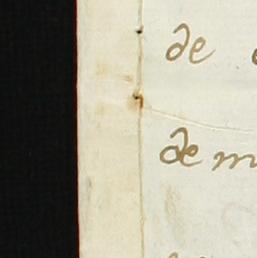 de
de m